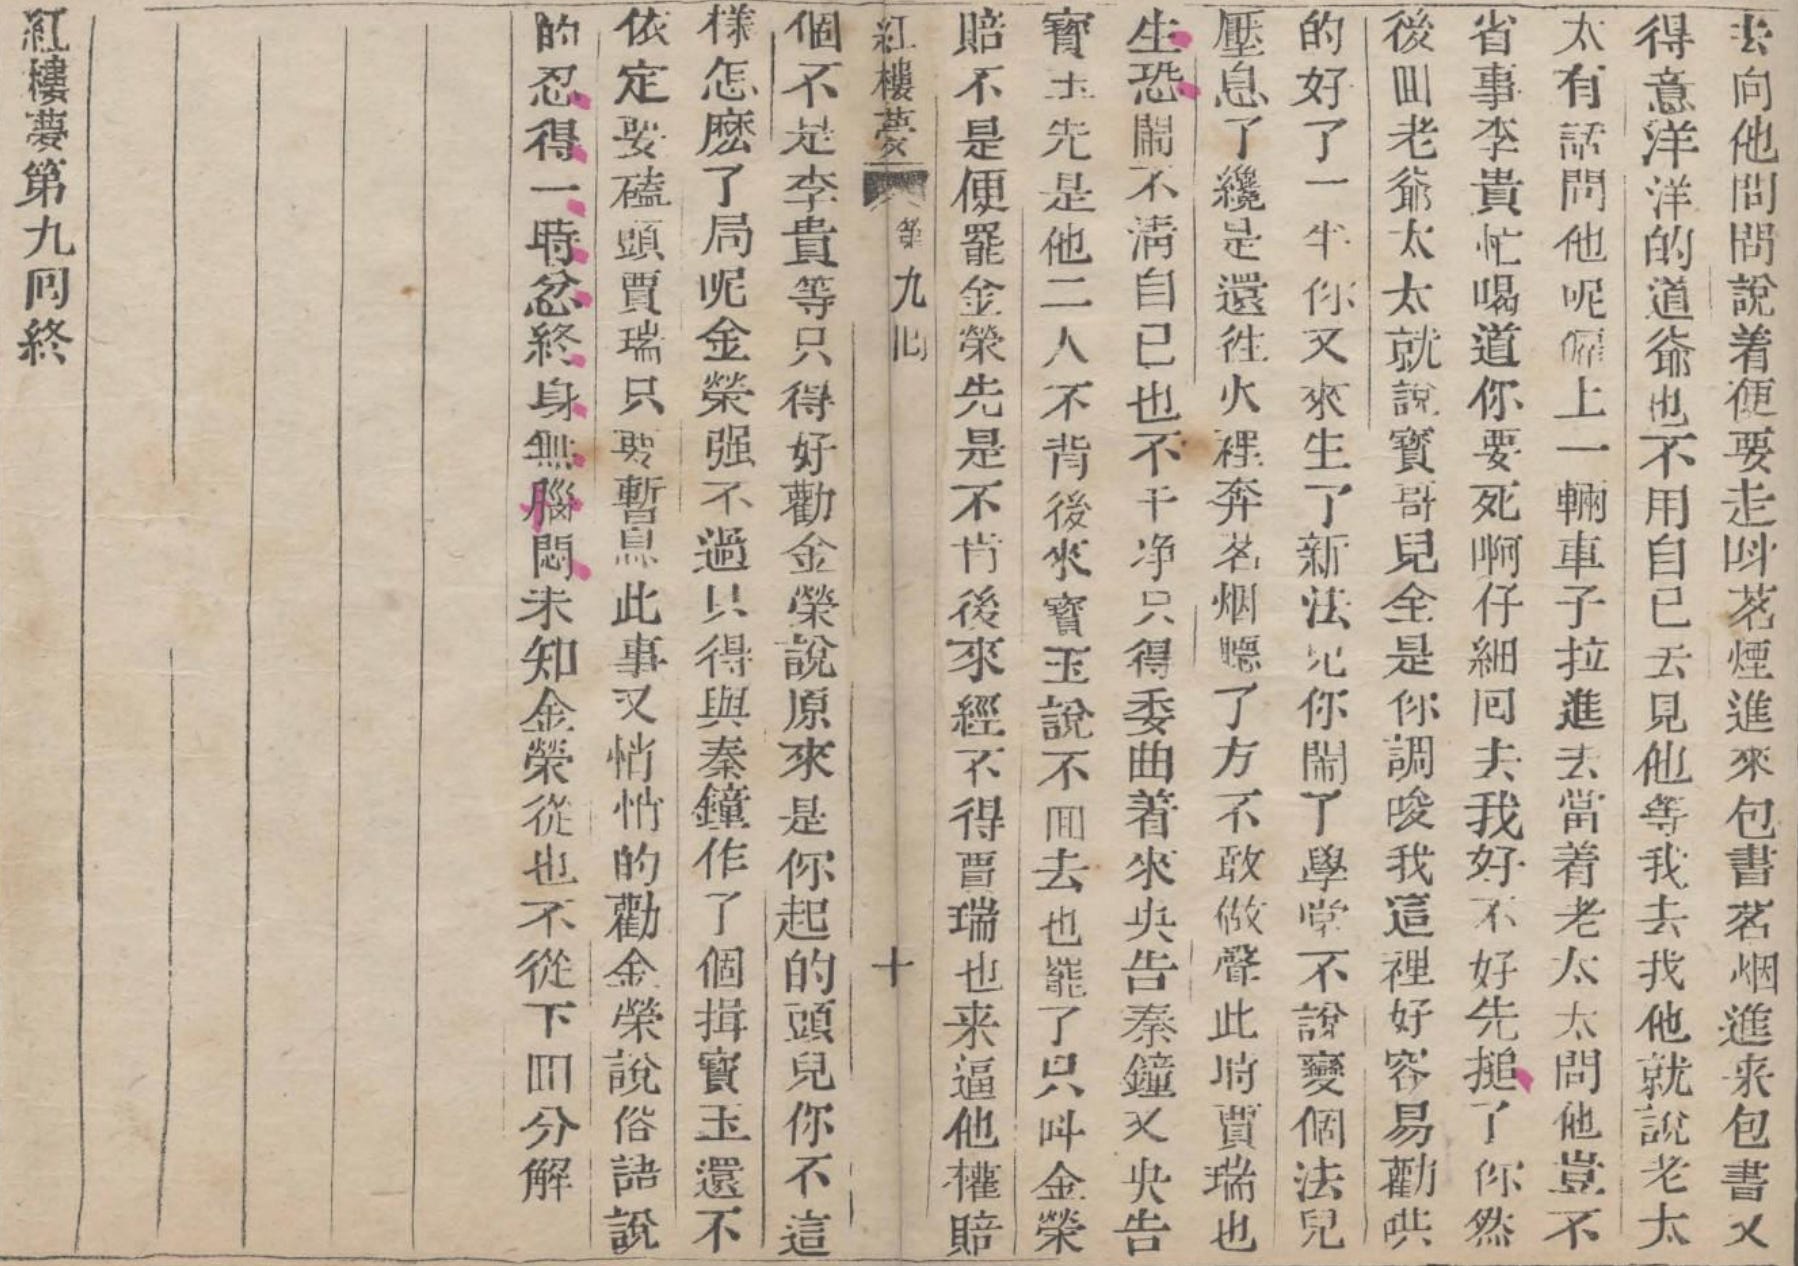 去向他問問說着便要走呌茗煙進來包書茗烟進来包書又
得意洋洋的道爺也不用自已去見他等我去找他就說老太
太有話問他呢僱上一輛車子拉進去當着老太太問他豈不
省事李貴忙喝道你要死啊仔細囘去我好不好先搥了你然
後囬老爺太太就說寳哥兒全是你調唆我這裡好容易勸哄
的好了一半你又來生了新法兒你鬧了學堂不說變個法兒
壓息了纔是還徃火裡奔茗烟聽了方不敢做聲此時賈瑞也
生恐鬧不淸自已也不干净只得委曲着來央告秦鐘又央告
寳玉先是他二人不肯後來寳玉說不囬去也罷了只呌金榮
賠不是便罷金榮先是不肯後來經不得賈瑞也来逼他權賠
紅樓夢 第九囘 十
個不是李貴等只得好勸金榮說原來是你起的頭兒你不這
樣怎麽了局呢金榮强不過只得與秦鐘作了個揖寳玉還不
依定要磕頭賈瑞只要暫息此事又悄悄的勸金榮說俗語說
的忍得一時忿終身無腦悶未知金榮從也不從下囬分解
紅樓夢第九囘終